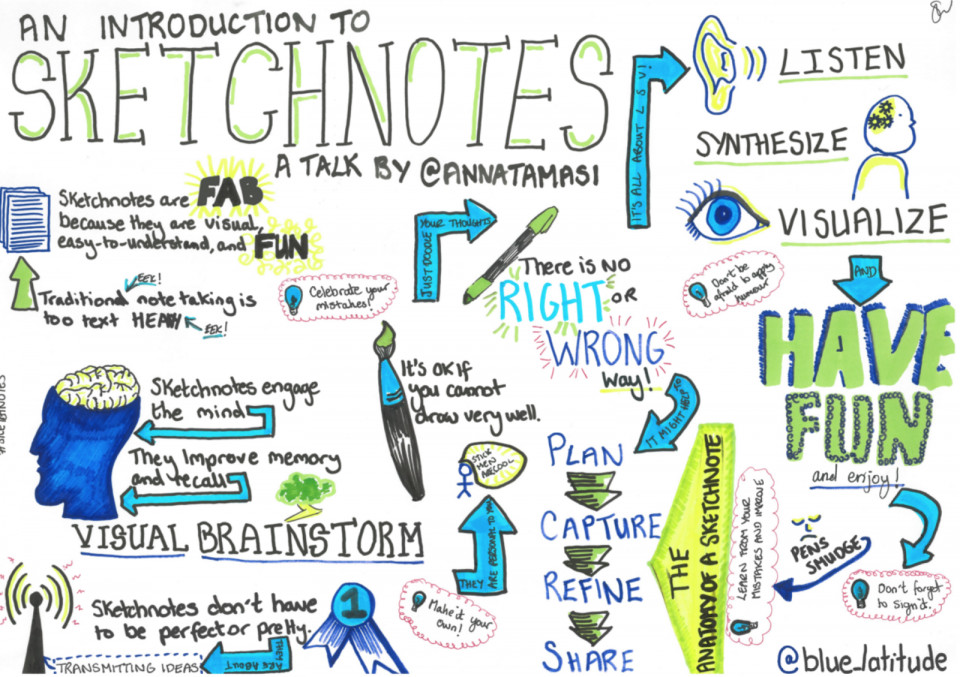 AN INTRODUCTION TO
SKETCHNOTES
A TALK BY @ANNATAMASI
Sketchnotes are FAB
because they are visual,
easy-to-understand, and FUN
EEK!
Traditional note taking is
too text HEAVY
EEK!
Celebrate your
mistakes!
JUST DOODLE
YOUR THOUGHTS
There is NO
RIGHT OR
WRONG
way!
IT'S ALL ABOUT L S V!
LISTEN
SYNTHESIZE
VISUALIZE
Don't be
afraid to apply
humour
AND
HAVE
FUN
and enjoy!
Sketchnotes engage
the mind
They improve memory
and recall
VISUAL BRAINSTORM
It's OK if
you cannot
draw very well.
STICK
MEN
ARE COOL
THEY ARE PERSONAL TO YOU
Make it your
own!
Sketchnotes don't have
to be perfect or pretty.
1
THEY ARE ABOUT
TRANSMITTING IDEAS
IT MIGHT HELP TO
PLAN
CAPTURE
REFINE
SHARE
THE
ANATOMY OF A SKETCHNOTE
LEARN FROM YOUR
MISTAKES AND IMPROVE
PENS
SMUDGE
Don't forget
to sign it!
@blue_latitude